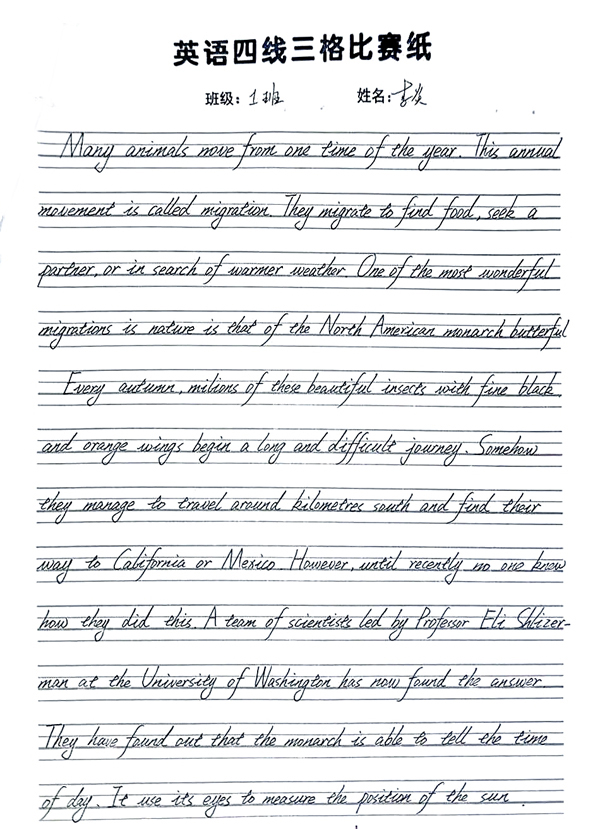 英语四线三格比赛纸
班级: 1班 姓名:李
Many animals move from one time of the year. This annual
movement is called migration. They migrate to find food, seek a
partner, or in search of warmer weather. One of the most wonderful
migrations is nature is that of the North American monarch butterful
Every autumn, milions of these beautiful insects with fine black
and orange wings begin a long and difficult journey. Somehow
they manage to travel around kilometres south and find their
way to California or Mexico. However, until recently no one knew
how they did this. A team of scientists led by Professor Eli Shlizer-
man at the University of Washington has now found the answer.
They have found out that the monarch is able to tell the time
of day. It use its eyes to measure the position of the sun.